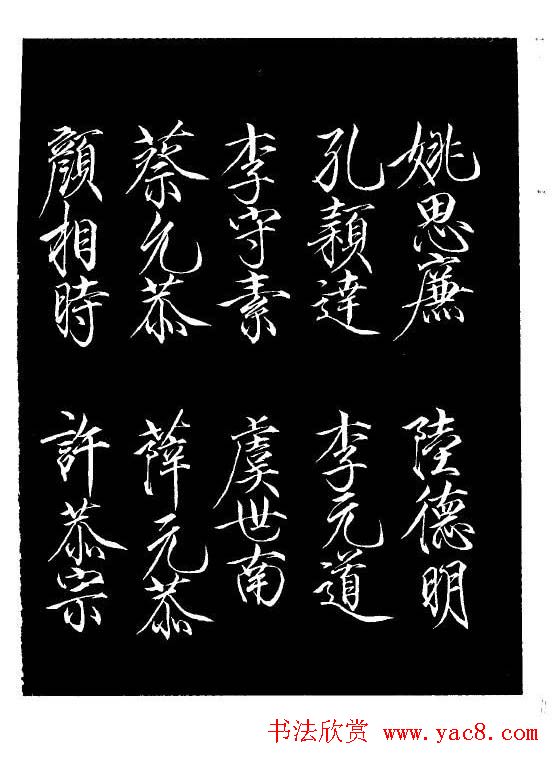 姚思廉 陸德明
孔穎達 李元道
李守素 虞世南
蔡允恭 薛元恭
顏相時 許恭宗
书法欣赏 www.yac8.com